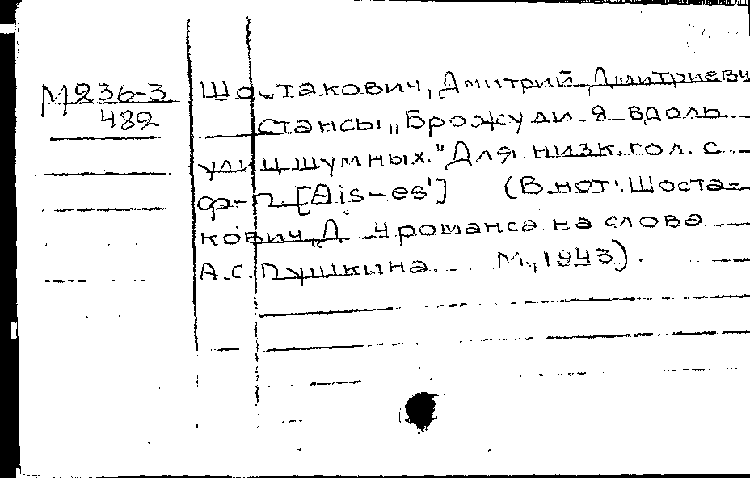 М236-3 Шостакович, Дмитрий Дмитриевич
482 Стансы „Брожу ли я вдоль
улиц шумных." Для низк. гол. с
ф-п. [Ais-es'] (В нот: Шоста-
кович, Д. 4 романса на слова
А.С. Пушкина. М., 1943).